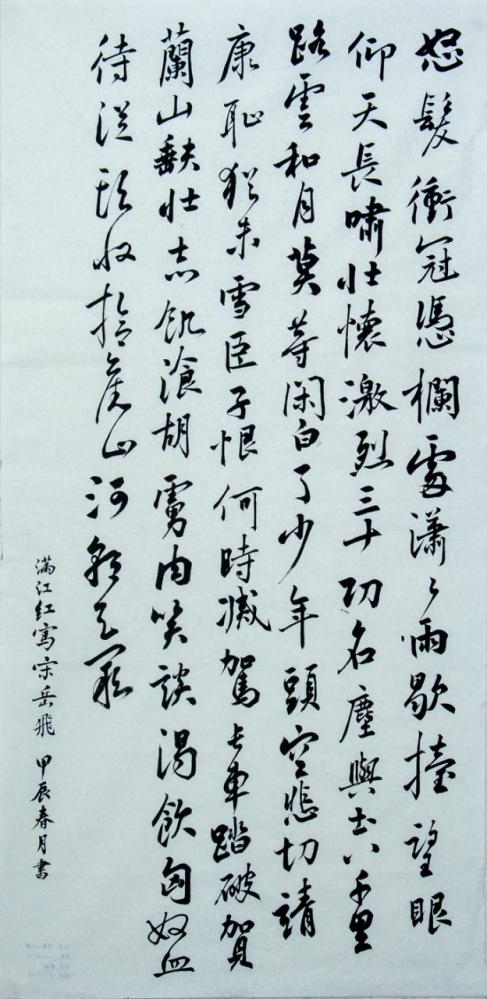 怒髮衝冠憑欄處瀟々雨歇擡望眼
仰天長嘯壯懷激烈三十功名塵與土八千里
路雲和月莫等閑白了少年頭空悲切靖
康恥猶未雪臣子恨何時滅駕長車踏破賀
蘭山缺壯志飢飡胡虜肉笑談渴飲匈奴血
待從頭收拾舊山河朝天闕
满江红寫宋岳飛 甲辰春月書